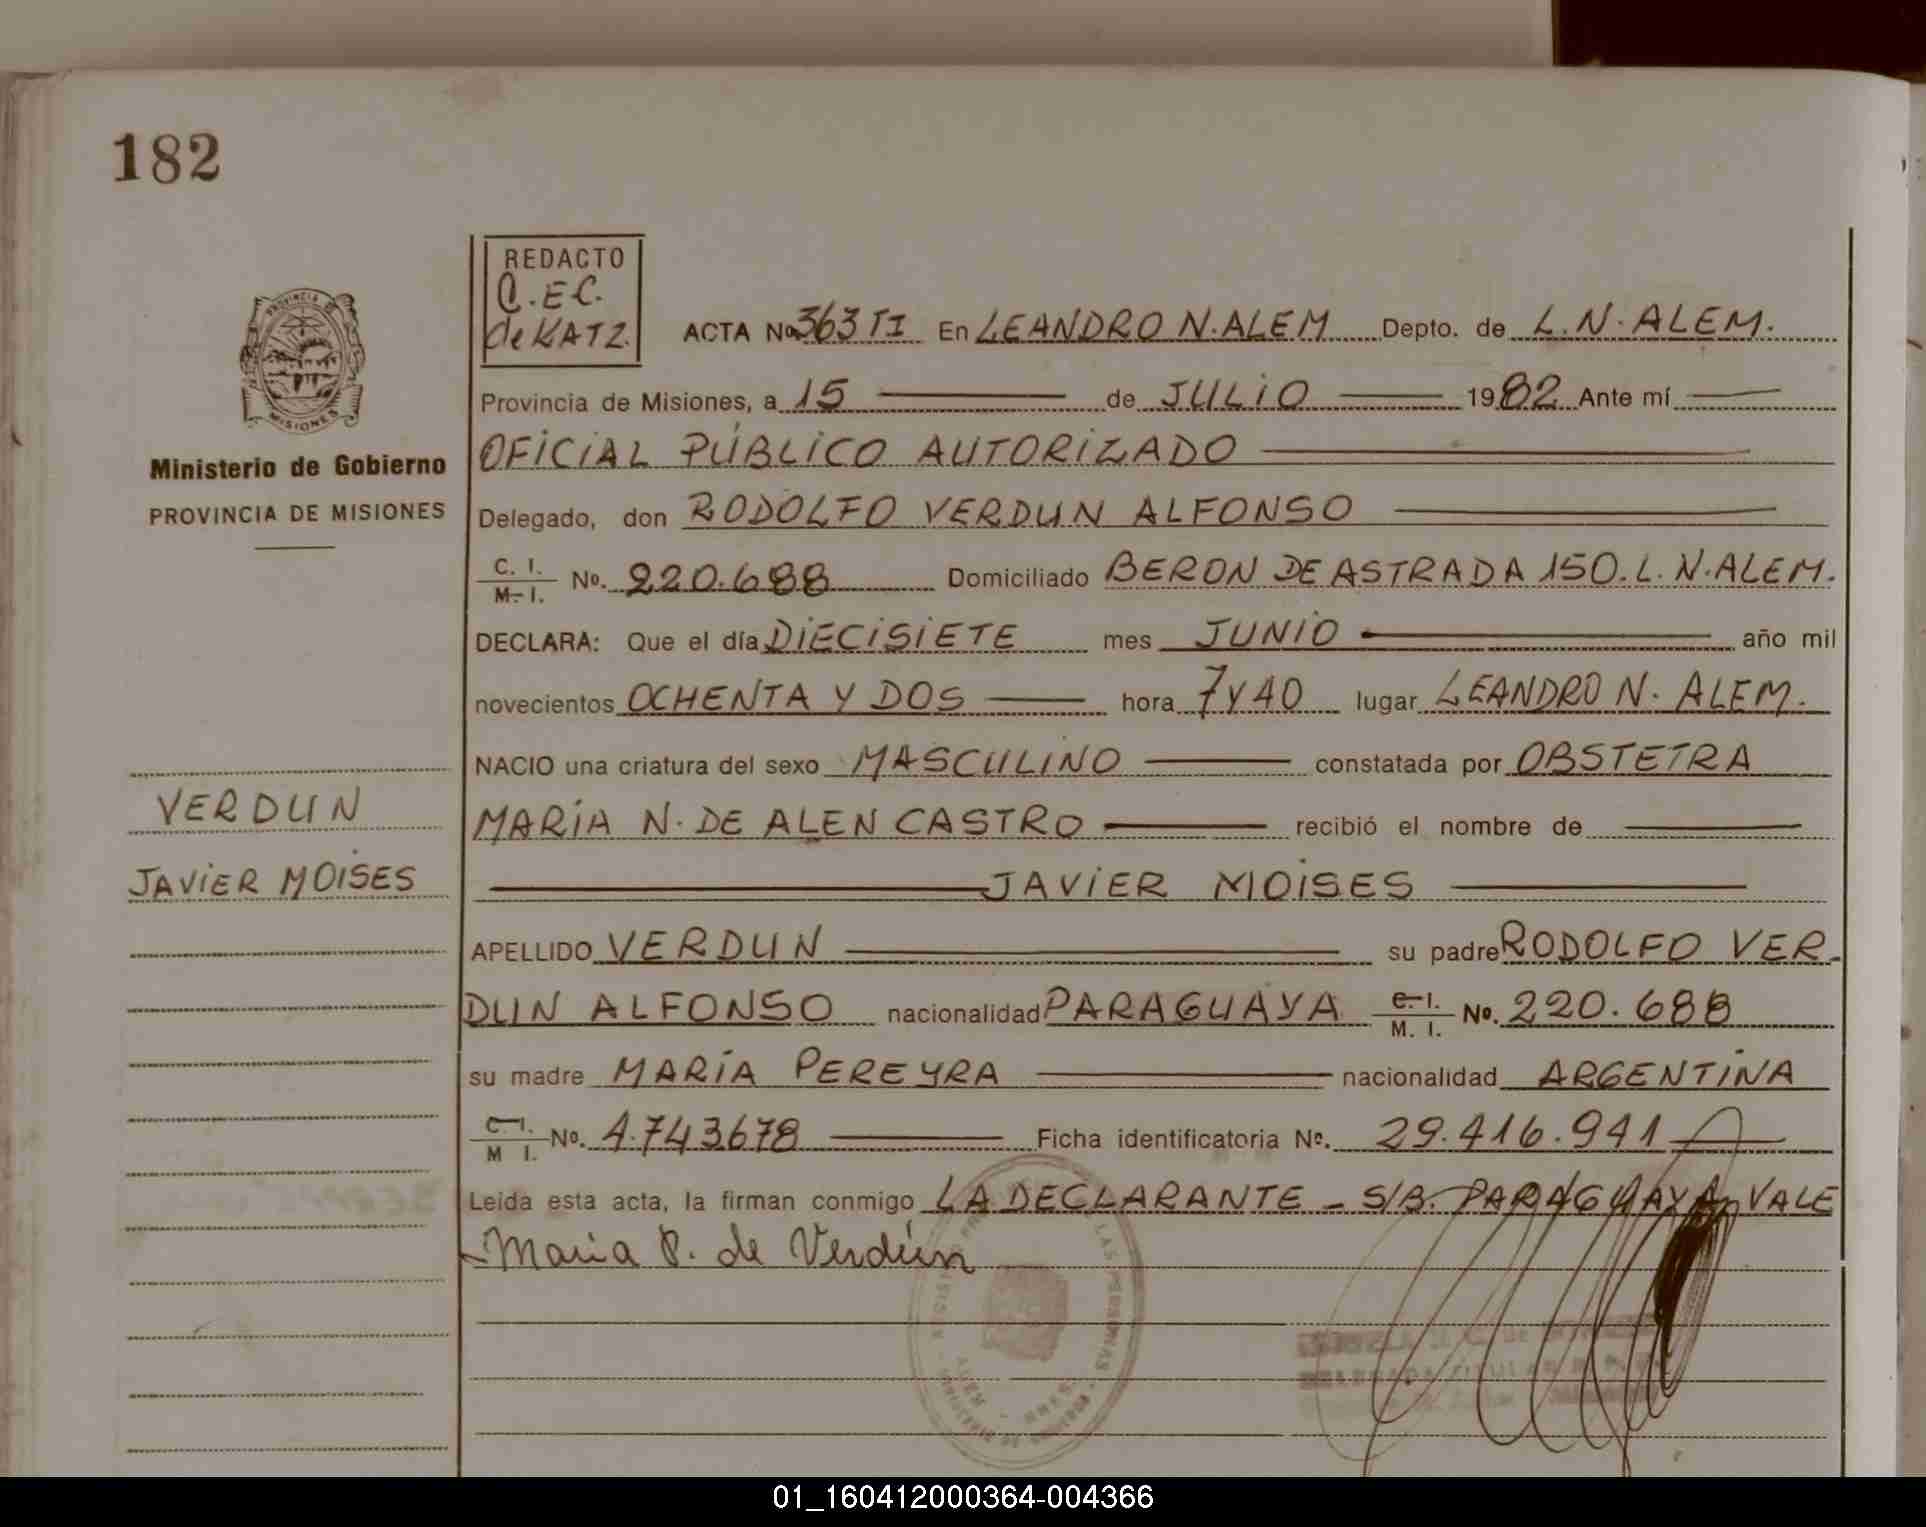 182
REDACTO
C.E.C.
de KATZ.
ACTA No. 363 TI En LEANDRO N. ALEM Depto. de L.N. ALEM.
Provincia de Misiones, a 15 de JULIO 1982 Ante mí
OFICIAL PÚBLICO AUTORIZADO
Delegado, don RODOLFO VERDUN ALFONSO
C. I.
M. I. No. 220.688 Domiciliado BERON DE ASTRADA 150. L. N. ALEM.
DECLARA: Que el día DIECISIETE mes JUNIO año mil
novecientos OCHENTA Y DOS hora 7 Y 40 lugar LEANDRO N. ALEM.
NACIO una criatura del sexo MASCULINO constatada por OBSTETRA
MARÍA N. DE ALENCASTRO recibió el nombre de
JAVIER MOISES
APELLIDO VERDUN su padre RODOLFO VER-
DUN ALFONSO nacionalidad PARAGUAYA C. I.
M. I. No. 220.688
su madre MARÍA PEREYRA nacionalidad ARGENTINA
C. I.
M I. No. 4.743.678 Ficha identificatoria No. 29.416.941
Leída esta acta, la firman conmigo LA DECLARANTE - S/B. PARAGUAYA VALE
Maria P. de Verdún
Ministerio de Gobierno
PROVINCIA DE MISIONES
VERDUN
JAVIER MOISES
PROVINCIA DE
MISIONES
01_160412000364-004366